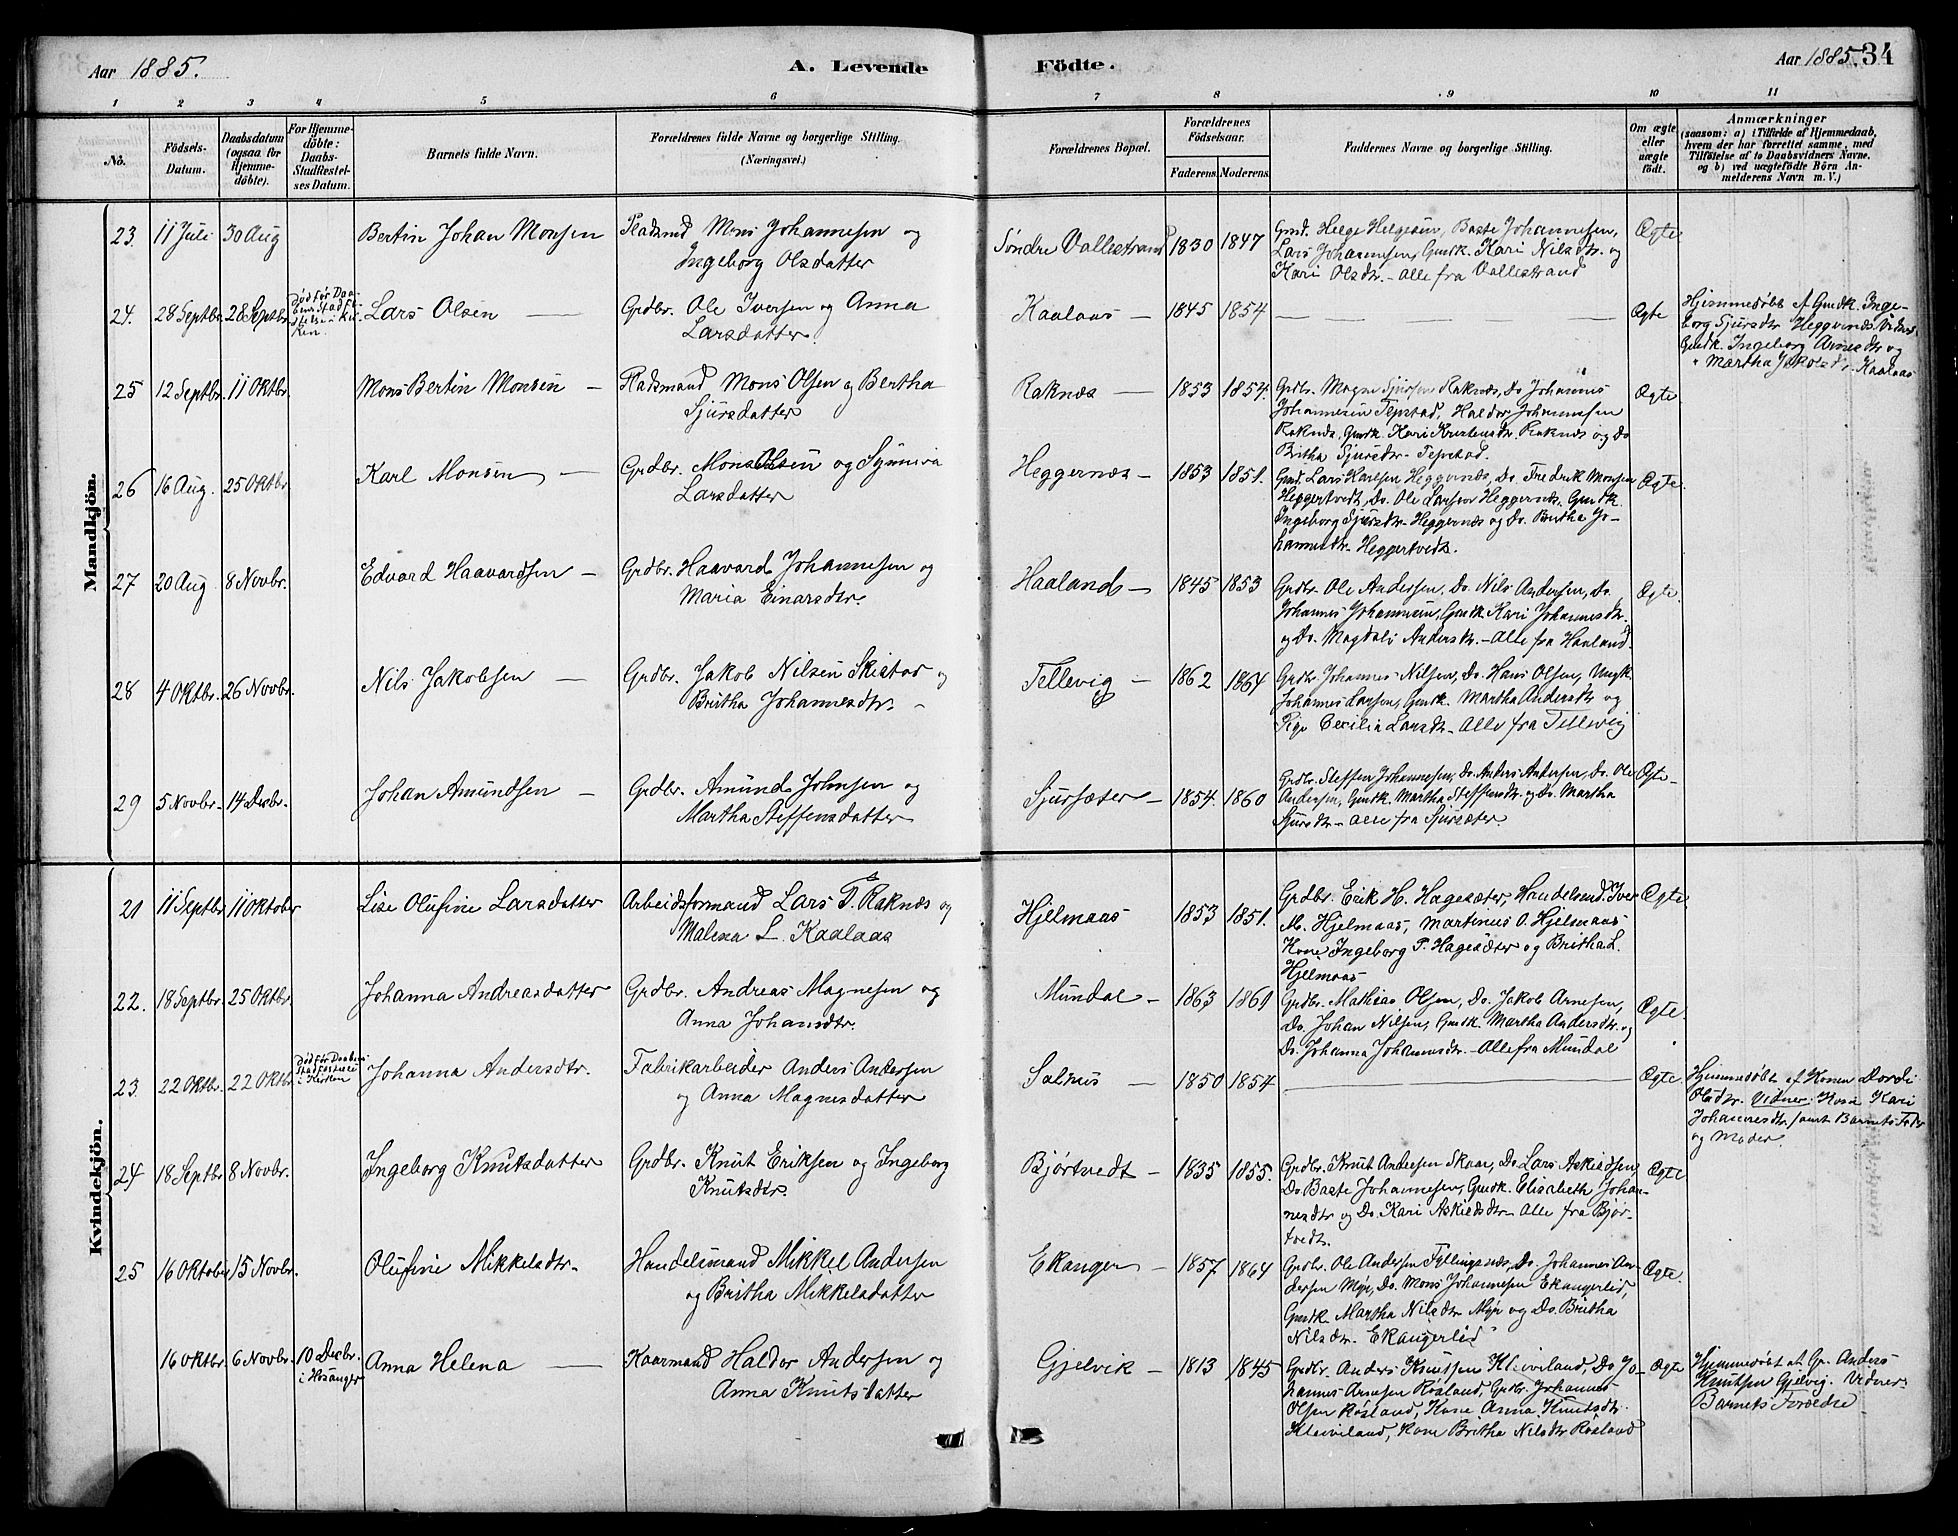 Aar 1885.
A. Levende
Födte.
Aar 1885.
34
1 2 3 4 5 6 7 8 9 10 11
No.
Födsels-
Datum.
Daabsdatum
(ogsaa for
Hjemme-
döbte).
For Hjemme-
döbte:
Daabs-
Stadfæstel-
ses Datum.
Barnets fulde Navn.
Forældrenes fulde Navne og borgerlige Stilling.
(Næringsvei.)
Forældrenes Bopæl.
Forældrenes
Födselsaar.
Faderens. Moderens.
Faddernes Navne og borgerlige Stilling.
Om ægte
eller
uægte
födt.
Anmærkninger
(saasom: a) i Tilfælde af Hjemmedaab,
hvem der har forrettet samme, med
Tilföielse af to Daabsvidners Navne,
og b) ved uægtefödte Börn An-
melderens Navn m. V.)
Mandkjön.
23. 11 Juli 30 Aug Bertin Johan Monsen
Pladsmd Mons Johannesen og
Ingeborg Olsdatter
Søndre Vallestrand 1830 1847
Gmd. Helge Helgesen, Baste Johannesen,
Lars Johannesen, Gmdk. Kari Nilsdtr. og
Kari Olsdtr. - Alle fra Vallestrand
Ægte
24. 28 Septbr. 28 Septbr.
Død før Daa-
bens Stadfæ-
stelse i Kir-
ken
Lars Olsen —
Grdbr. Ole Iversen og Anna
Larsdatter
Kaalaas — 1845 1854
Ægte
Hjemmedøbt af Gmdk. Inge-
borg Sjursdtr Heggernæs Vidner
Gmdk. Ingeborg Arnesdtr og
" Martha Jakobsdtr. Kaalaas
25 12 Septbr. 11 Oktbr. Mons Bertin Monsen —
Pladsmand Mons Olsen og Bertha
Sjursdatter
Raknæs — 1853 1854.
Grdbr. Magne Sjursen Raknæs, Do Johannes
Johannesen Tepstad, Haldor Johannesen
Raknæs, Gmdk. Kari Knutsdtr. Raknæs og Do
Britha Sjursdtr. Tepstad.
Ægte
26 16 Aug. 25 Oktbr. Karl Monsen —
Grdbr. Mons Olsen og Synneva
Larsdatter
Heggernæs — 1853 1851.
Gmd. Lars Karlsen Heggernæs, Do. Fredrik Monsen
Heggertvedt, Do. Ole Larsen Heggernæs, Gmdk
Ingeborg Sjursdtr. Heggernæs og Do. Britha Jo-
hannesdtr. Heggertvedt.
Ægte
27 20 Aug 8 Novbr. Edvard Haavardsen —
Grdbr. Haavard Johannesen og
Maria Einarsdtr.
Haaland — 1845 1853
Grdbr. Ole Andersen, Do. Nils Andersen, Do.
Johannes Johannesen, Gmdk Kari Johannesdtr.
og Do. Magdali Andersdtr. - Alle fra Haaland.
Ægte.
28 4 Oktbr. 26 Novbr. Nils Jakobsen —
Grdbr. Jakob Nilsen Skistad og
Britha Johannesdtr. -
Tellevig — 1862 1864
Grdbr. Johannes Nilsen, Do. Hans Olsen, Ungk.
Johannes Larsen, Gmdk. Martha Andersdtr og
Pige Cecilia Larsdtr - Alle fra Tellevig
Ægte
29 5 Novbr. 14 Decbr. Johan Amundsen —
Grdbr. Amund Johnsen og
Martha Steffensdatter
Sjursæter — 1854. 1860
Grdbr. Steffen Johannesen, Do. Anders Andersen, Do. Ole
Andersen, Gmdk. Martha Steffensdtr. og Do. Martha
Sjursdtr. - Alle fra Sjursæter.
Ægte
Kvindekjön.
21 11 Septbr 11 Oktober Lise Olufine Larsdatter
Arbeidsformand Lars T. Raknæs og
Malena L. Kaalaas
Hjelmaas 1853 1851.
Grdbr. Erik H. Hagesæter, Handelsmd. Iver
M. Hjelmaas, Martinus O. Hjelmaas
Kone Ingeborg P. Hagesæter og Britha L.
Hjelmaas
Ægte
22. 18 Septbr. 25 Oktbr. Johanna Andreasdatter
Grdbr. Andreas Magnesen og
Anna Johansdtr.
Mundal — 1863 1861
Grdbr. Mathias Olsen, Do. Jakob Arnesen,
Do. Johan Nilsen, Gmdk. Martha Andersdtr. og
Do. Johanna Johannesdtr. - Alle fra Mundal
Ægte.
23. 22 Oktbr. 22 Oktbr.
Død før Daabens
Stadfæstelse
i Kirken
Johanna Andersdtr.
Fabrikarbeider Anders Andersen
og Anna Magnesdatter
Salhus — 1850 1854
Ægte.
Hjemmedøbt af Konen Dordi
Olsdtr. Vidner: Kone Kari
Johannesdtr samt Barnets Fader
og Moder
24 18 Septbr. 8 Novbr. Ingeborg Knutsdatter
Grdbr. Knut Eriksen og Ingeborg
Knutsdtr.
Bjørtvedt — 1835 1855.
Grdbr. Knut Andersen Skaar, Do. Lars Askildsen
Do Baste Johannesen, Gmdk. Elisabeth Johan-
nesdtr og Do. Kari Askildsdtr. Alle fra Bjør-
tvedt.
Ægte
25 16 Oktober 15 Novbr. Olufine Mikkelsdtr.
Handelsmand Mikkel Andersen
og Britha Mikkelsdatter
Ekanger — 1857 1864
Grdbr. Ole Andersen Fyllingsnæs, Do. Johannes An-
dersen Myr, Do. Mons Johannesen Ekangerlid,
Gmdk. Martha Nilsdtr Myr og Do. Britha
Nilsdtr. Ekangerlid
Ægte.
16 Oktbr. 6 Novbr. 10 Decbr.
i Hosanger
Anna Helena —
Kaarmand Haldor Andersen og
Anna Knutsdatter
Gjelvik — 1813 1845
Grdbr. Anders Knutsen Kleiveland, Do Jo-
hannes Arnesen Røsland, Grdbr. Johannes
Olsen Røsland, Kone Anna Knutsdtr.
Kleiveland, Kone Britha Nilsdtr Røsland
Ægte
Hjemmedøbt af Gr. Anders
Knutsen Gjelvig. Vidner
Barnets Forældre